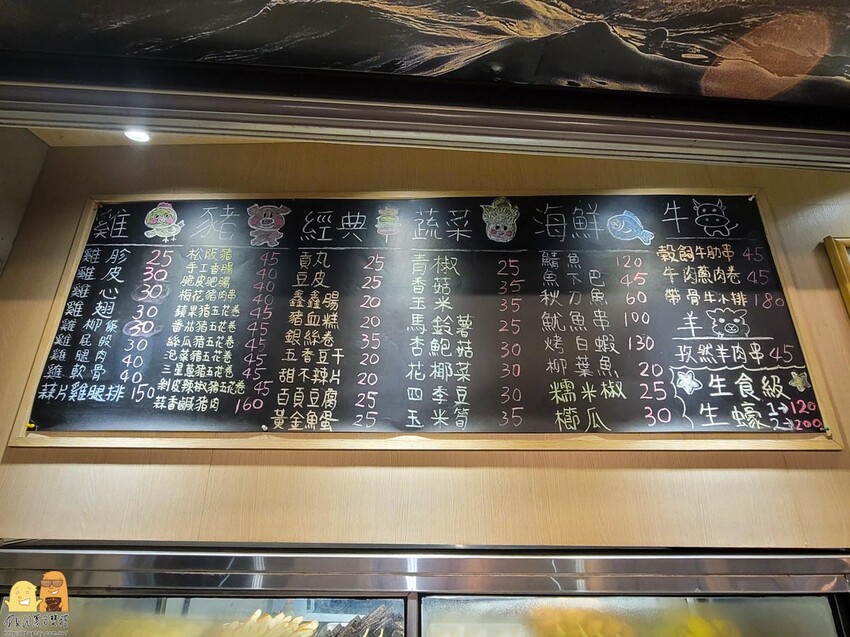 雞
雞胗 25
雞皮 30
雞心 30
雞翅 30
雞柳條 30
雞屁股 30
雞腿肉 40
雞軟骨 40
蒜片雞腿排 150
豬
松阪豬 45
手工香腸 40
脆皮肥腸 40
梅花豬肉串 40
蘋果豬五花卷 45
番茄豬五花卷 45
絲瓜豬五花卷 45
泡菜豬五花卷 45
三星蔥豬五花卷 45
剝皮辣椒豬五花卷 45
蒜香鹹豬肉 160
經典
貢丸 25
豆皮 25
鑫鑫腸 20
豬血糕 20
銀絲卷 35
五香豆干 20
甜不辣片 20
百頁豆腐 25
黃金魚蛋 25
蔬菜
青椒 25
香菇 35
玉米 35
馬鈴薯 25
杏鮑菇 30
花椰菜 30
四季豆 30
玉米筍 35
海鮮
鯖魚 120
魚下巴 45
秋刀魚 60
魷魚串 100
烤白蝦 130
柳葉魚
糯米椒 25
櫛瓜 30
牛
穀飼牛肋串 45
牛肉蔥肉卷 45
帶骨牛小排 180
羊
孜然羊肉串 45
生食級
生蠔 1→120
2→200